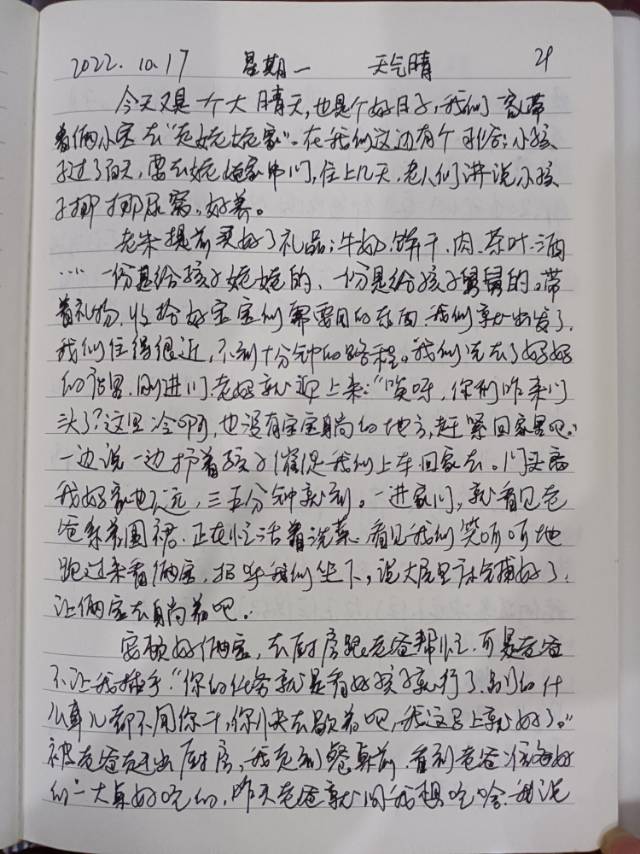 2022.10.17 星期一 天气晴 21
今天又是一个大晴天,也是个好日子,我们家带
着俩小宝去“走姥姥家”。在我们这边有个习俗:小孩
过了百天,要去姥姥家串门,住上几天,老人们讲说小孩
子挪挪尿窝,好养。
老朱提前买好了礼品:牛奶、饼干、肉、茶叶、酒
…… 一份是给孩子姥姥的、一份是给孩子舅舅的。带
着礼物,收拾好宝宝们需要用的东西,我们就出发了。
我们住得很近,不到十分钟的路程。我们先去了妈妈
的店里,刚进门,老妈就迎上来:“哎呀,你们咋来门
头了?这里冷啊,也没有宝宝躺的地方,赶紧回家里吧。”
一边说一边抱着孩子催促我们上车回家去。门头离
我妈家也不远,三五分钟就到。一进家门,就看见老
爸系着围裙,正在忙活着洗菜,看见我们笑呵呵地
跑过来看俩宝,招呼我们坐下,说大屋里铺好了,
让俩宝去躺着吧。
安顿好俩宝,去厨房跟老爸帮忙,可是老爸
不让我插手:“你的任务就是看好孩子就行了,别的什
么事儿都不用你干,你快去歇着吧,我这马上就好了。”
被老爸赶出厨房,我走到餐桌前,看到老爸准备好
的一大桌好吃的,昨天老爸就问我想吃啥,我说